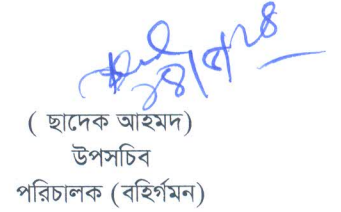 ( ছাদেক আহমদ)
উপসচিব
পরিচালক (বহির্গমন)